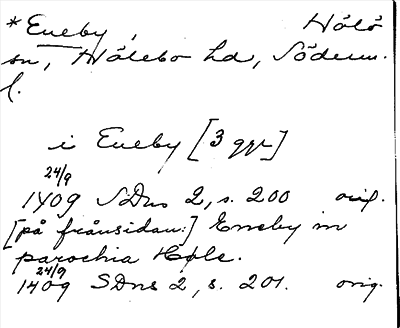 *Eneby, Hölö
sn, Hölebo hd, Söderm.
l.
i Eneby [3 ggr]
24/9
1409 SDns 2, s. 200 orig.
[på frånsidan:] Eneby in
parochia Høle.
24/9
1409 SDns 2, s. 201. orig.